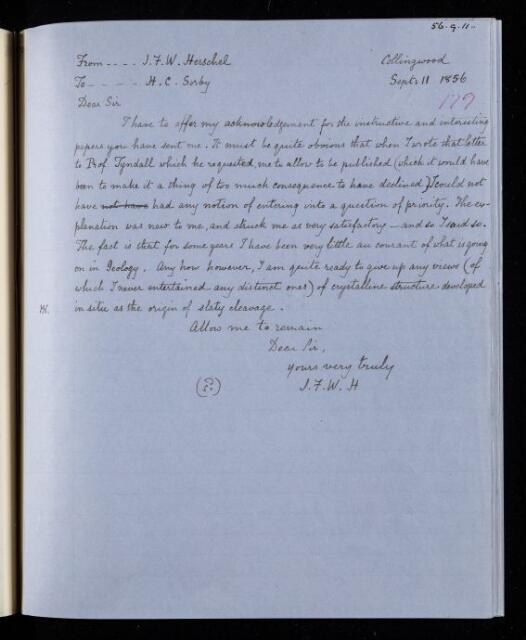 56.9.11-
From ---- J.F.W. Herschel Collingwood
To - - - - H. C. Sorby Sept: 11 1856
179
Dear Sir
I have to offer my acknowledgement for the instructive and interesting
papers you have sent me. It must be quite obvious that when I wrote that letter
to Prof. Tyndall which he requested me to allow to be published (which it would have
been to make it a thing of too much consequence to have declined) I could not
have not have had any notion of entering into a question of priority. The ex-
planation was new to me, and struck me as very satisfactory – and so I said so.
The fact is that for some years I have been very little au courant of what is going
on in Geology. Any how however, I am quite ready to give up any views (of
which I never entertained any distinct ones) of crystalline structure developed
in situ as the origin of slaty cleavage.
Allow me to remain
Dear Sir,
yours very truly
J. F. W. H